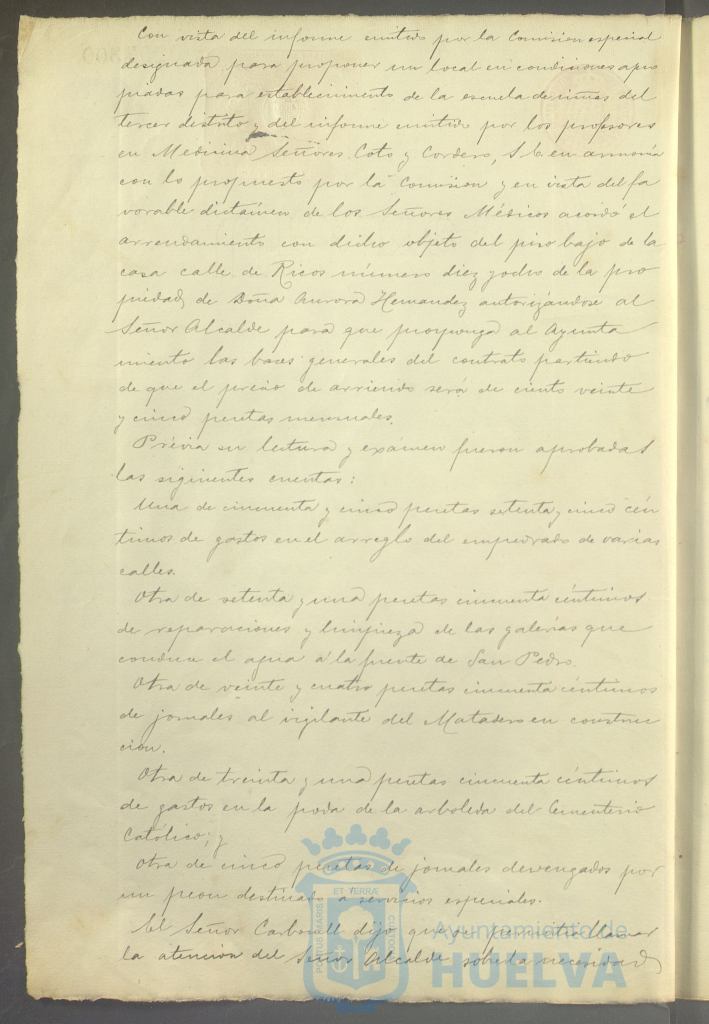 Con vista del informe emitido por la Comision especial
designada para proponer un local en condiciones apro
piadas para establecimiento de la escuela de niñas del
tercer distrito y del informe emitido por los profesores
en Medicina Señores Coto y Cordero, S. E. en armonía
con lo propuesto por la Comision y en vista del fa
vorable dictámen de los Señores Médicos acordó el
arrendamiento con dicho objeto del piso bajo de la
casa calle de Ricos número diez y ocho de la pro
piedad de Doña Aurora Hernandez autorizándose al
Señor Alcalde para que proponga al Ayunta
miento las bases generales del contrato partiendo
de que el precio de arriendo será de ciento veinte
y cinco pesetas mensuales.
Prévia su lectura y exámen fueron aprobadas
las siguientes cuentas:
Una de cincuenta y cinco pesetas setenta y cinco cén
timos de gastos en el arreglo del empedrado de varias
calles.
Otra de setenta y una pesetas cincuenta céntimos
de reparaciones y limpieza de las galerías que
conduce el agua á la fuente de San Pedro.
Otra de veinte y cuatro pesetas cincuenta céntimos
de jornales al vigilante del Matadero en construc
cion.
Otra de treinta y una pesetas cincuenta céntimos
de gastos en la poda de la arboleda del Cementerio
Católico; y
Otra de cinco pesetas de jornales devengados por
un peon destinado a servicios especiales.
El Señor Carbonell dijo que se permitia llamar
la atencion del Señor Alcalde sobre la necesidad
PORTUS MARIS
ET TERRÆ
CUSTODIA
Ayuntamiento de
HUELVA